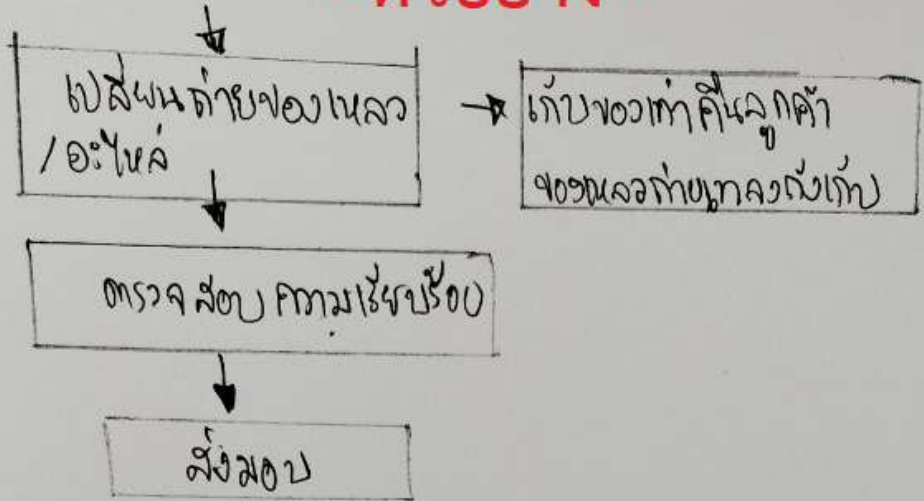 เปลี่ยนถ่ายของเหลว
/อะไหล่
เก็บของเก่าคืนลูกค้า
ของเหลวถ่ายเทลงถังเก็บ
ตรวจสอบความเรียบร้อย
ส่งมอบ